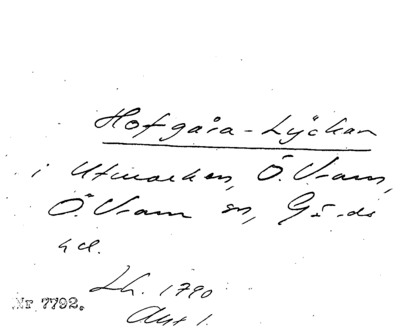 Hofgåra-Lÿckan
i Utmarken, Ö. Vram,
Ö. Vram sn, Gärds
hd.
Lh. 1790
Akt 1.
Nr 7792.